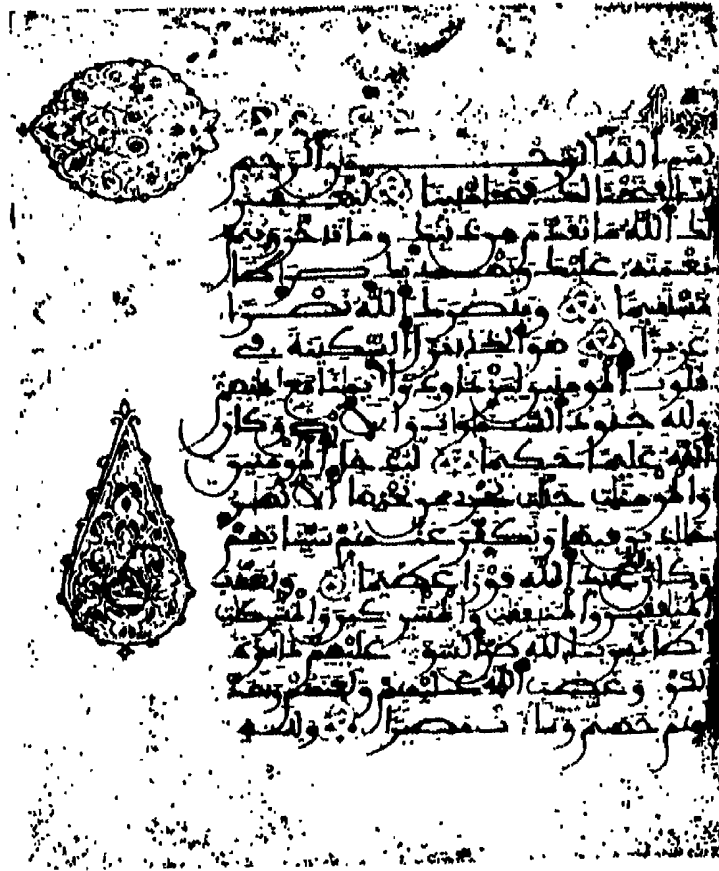 بسم الله الرحمن الرحيم
إنا فتحنا لك فتحا مبينا ليغفر
لك الله ما تقدم من ذنبك وما تأخر ويتم
نعمته عليك ويهديك صراطا
مستقيما وينصرك الله نصرا
عزيزا هو الذي أنزل السكينة في
قلوب المومنين ليزدادوا إيمانا مع إيمنهم
ولله جنود السموات والأرض وكان
الله عليما حكيما ليدخل المومنين
والمومنت جنت تجري من تحتها الأنهر
خلدين فيها ويكفر عنهم سيئاتهم
وكان ذلك عند الله فوزا عظيما ويعذب
المنفقين والمنفقت والمشركين والمشركت
الظانين بالله ظن السوء عليهم دائرة
السوء وغضب الله عليهم ولعنهم وأعد لهم
جهنم وساءت مصيرا ولله